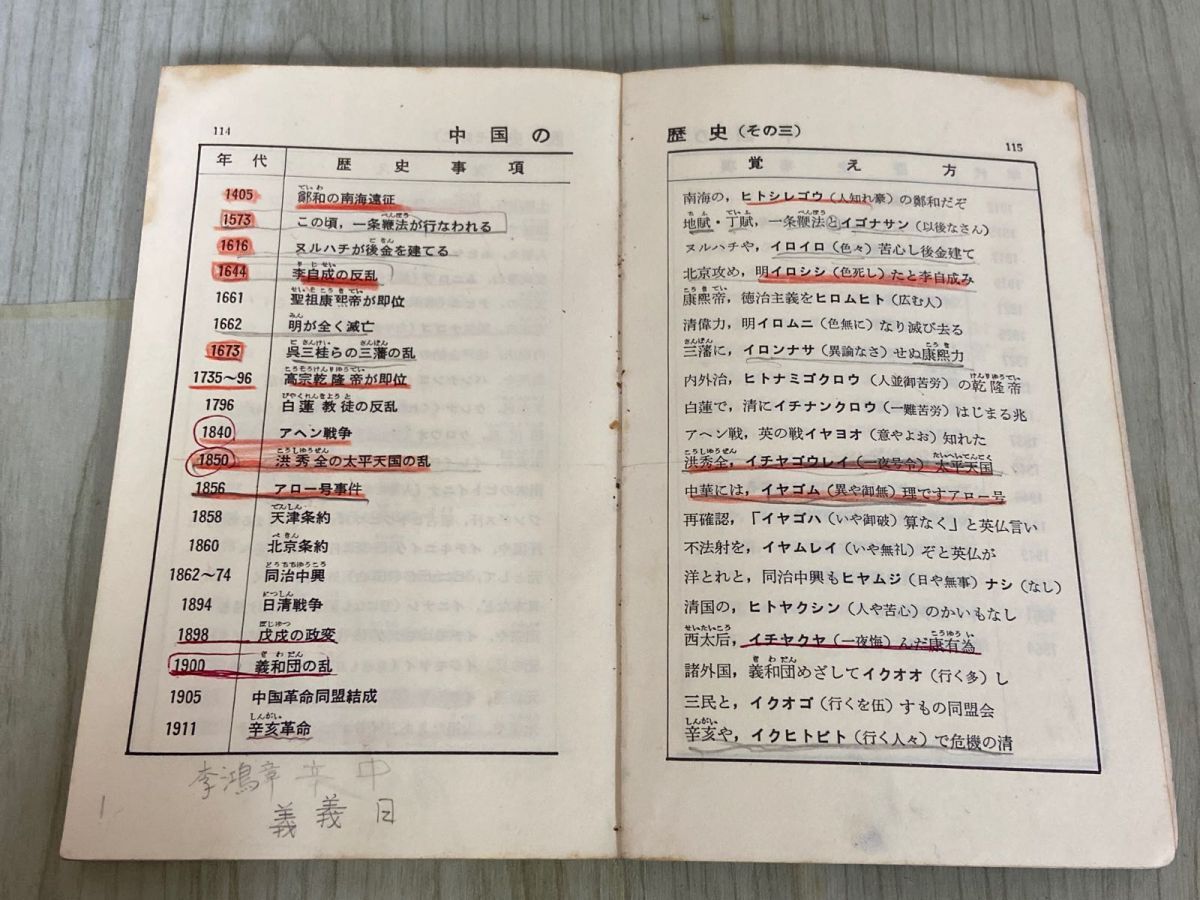 114
中国の
年代 歴史事項
1405 鄭和の南海遠征
1573 この頃，一条鞭法が行なわれる
1616 ヌルハチが後金を建てる
1644 李自成の反乱
1661 聖祖康熙帝が即位
1662 明が全く滅亡
1673 呉三桂らの三藩の乱
1735～96 高宗乾隆帝が即位
1796 白蓮教徒の反乱
1840 アヘン戦争
1850 洪秀全の太平天国の乱
1856 アロー号事件
1858 天津条約
1860 北京条約
1862～74 同治中興
1894 日清戦争
1898 戊戌の政変
1900 義和団の乱
1905 中国革命同盟結成
1911 辛亥革命
李鴻章 辛 中
義 義 日
歴史（その三）
115
覚え方
南海の，ヒトシレゴウ（人知れ豪）の鄭和だぞ
地賦・丁賦，一条鞭法とイゴナサン（以後なさん）
ヌルハチや，イロイロ（色々）苦心し後金建て
北京攻め，明イロシシ（色死し）たと李自成み
康熙帝，徳治主義をヒロムヒト（広む人）
清偉力，明イロムニ（色無に）なり滅び去る
三藩に，イロンナサ（異論なさ）せぬ康熙力
内外治，ヒトナミゴクロウ（人並御苦労）の乾隆帝
白蓮で，清にイチナンクロウ（一難苦労）はじまる兆
アヘン戦，英の戦イヤヨオ（意やよお）知れた
洪秀全，イチヤゴウレイ（一夜号令）太平天国
中華には，イヤゴム（異や御無）理ですアロー号
再確認，「イヤゴハ（いや御破）算なく」と英仏言い
不法射を，イヤムレイ（いや無礼）ぞと英仏が
洋とれと，同治中興もヒヤムジ（日や無事）ナシ（なし）
清国の，ヒトヤクシン（人や苦心）のかいもなし
西太后，イチヤクヤ（一夜悔）んだ康有為
諸外国，義和団めざしてイクオオ（行く多）し
三民と，イクオゴ（行くを伍）すもの同盟会
辛亥や，イクヒトビト（行く人々）で危機の清